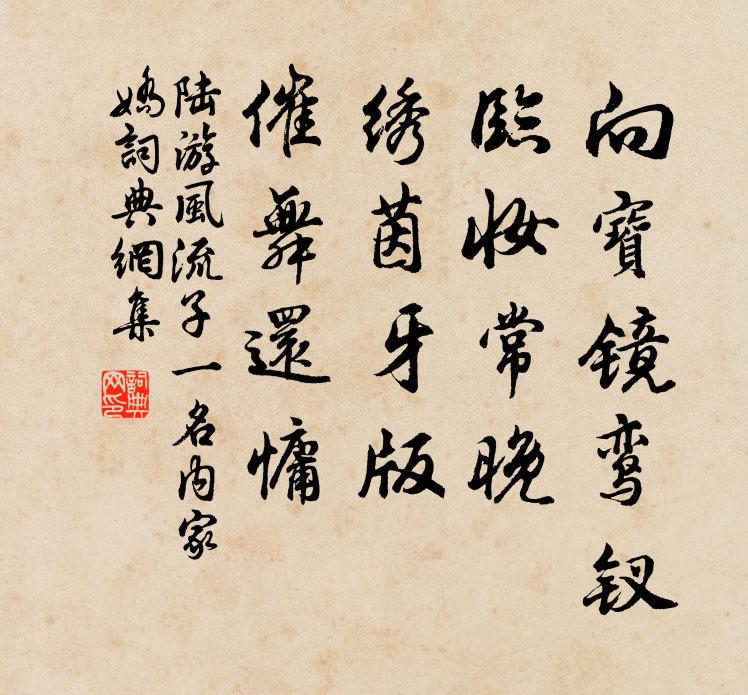 向寶镜鸾钗
臨妆常晚
绣茵牙版
催舞還慵
陆游風流子一名内家
嬌詞典網集
詞典網印